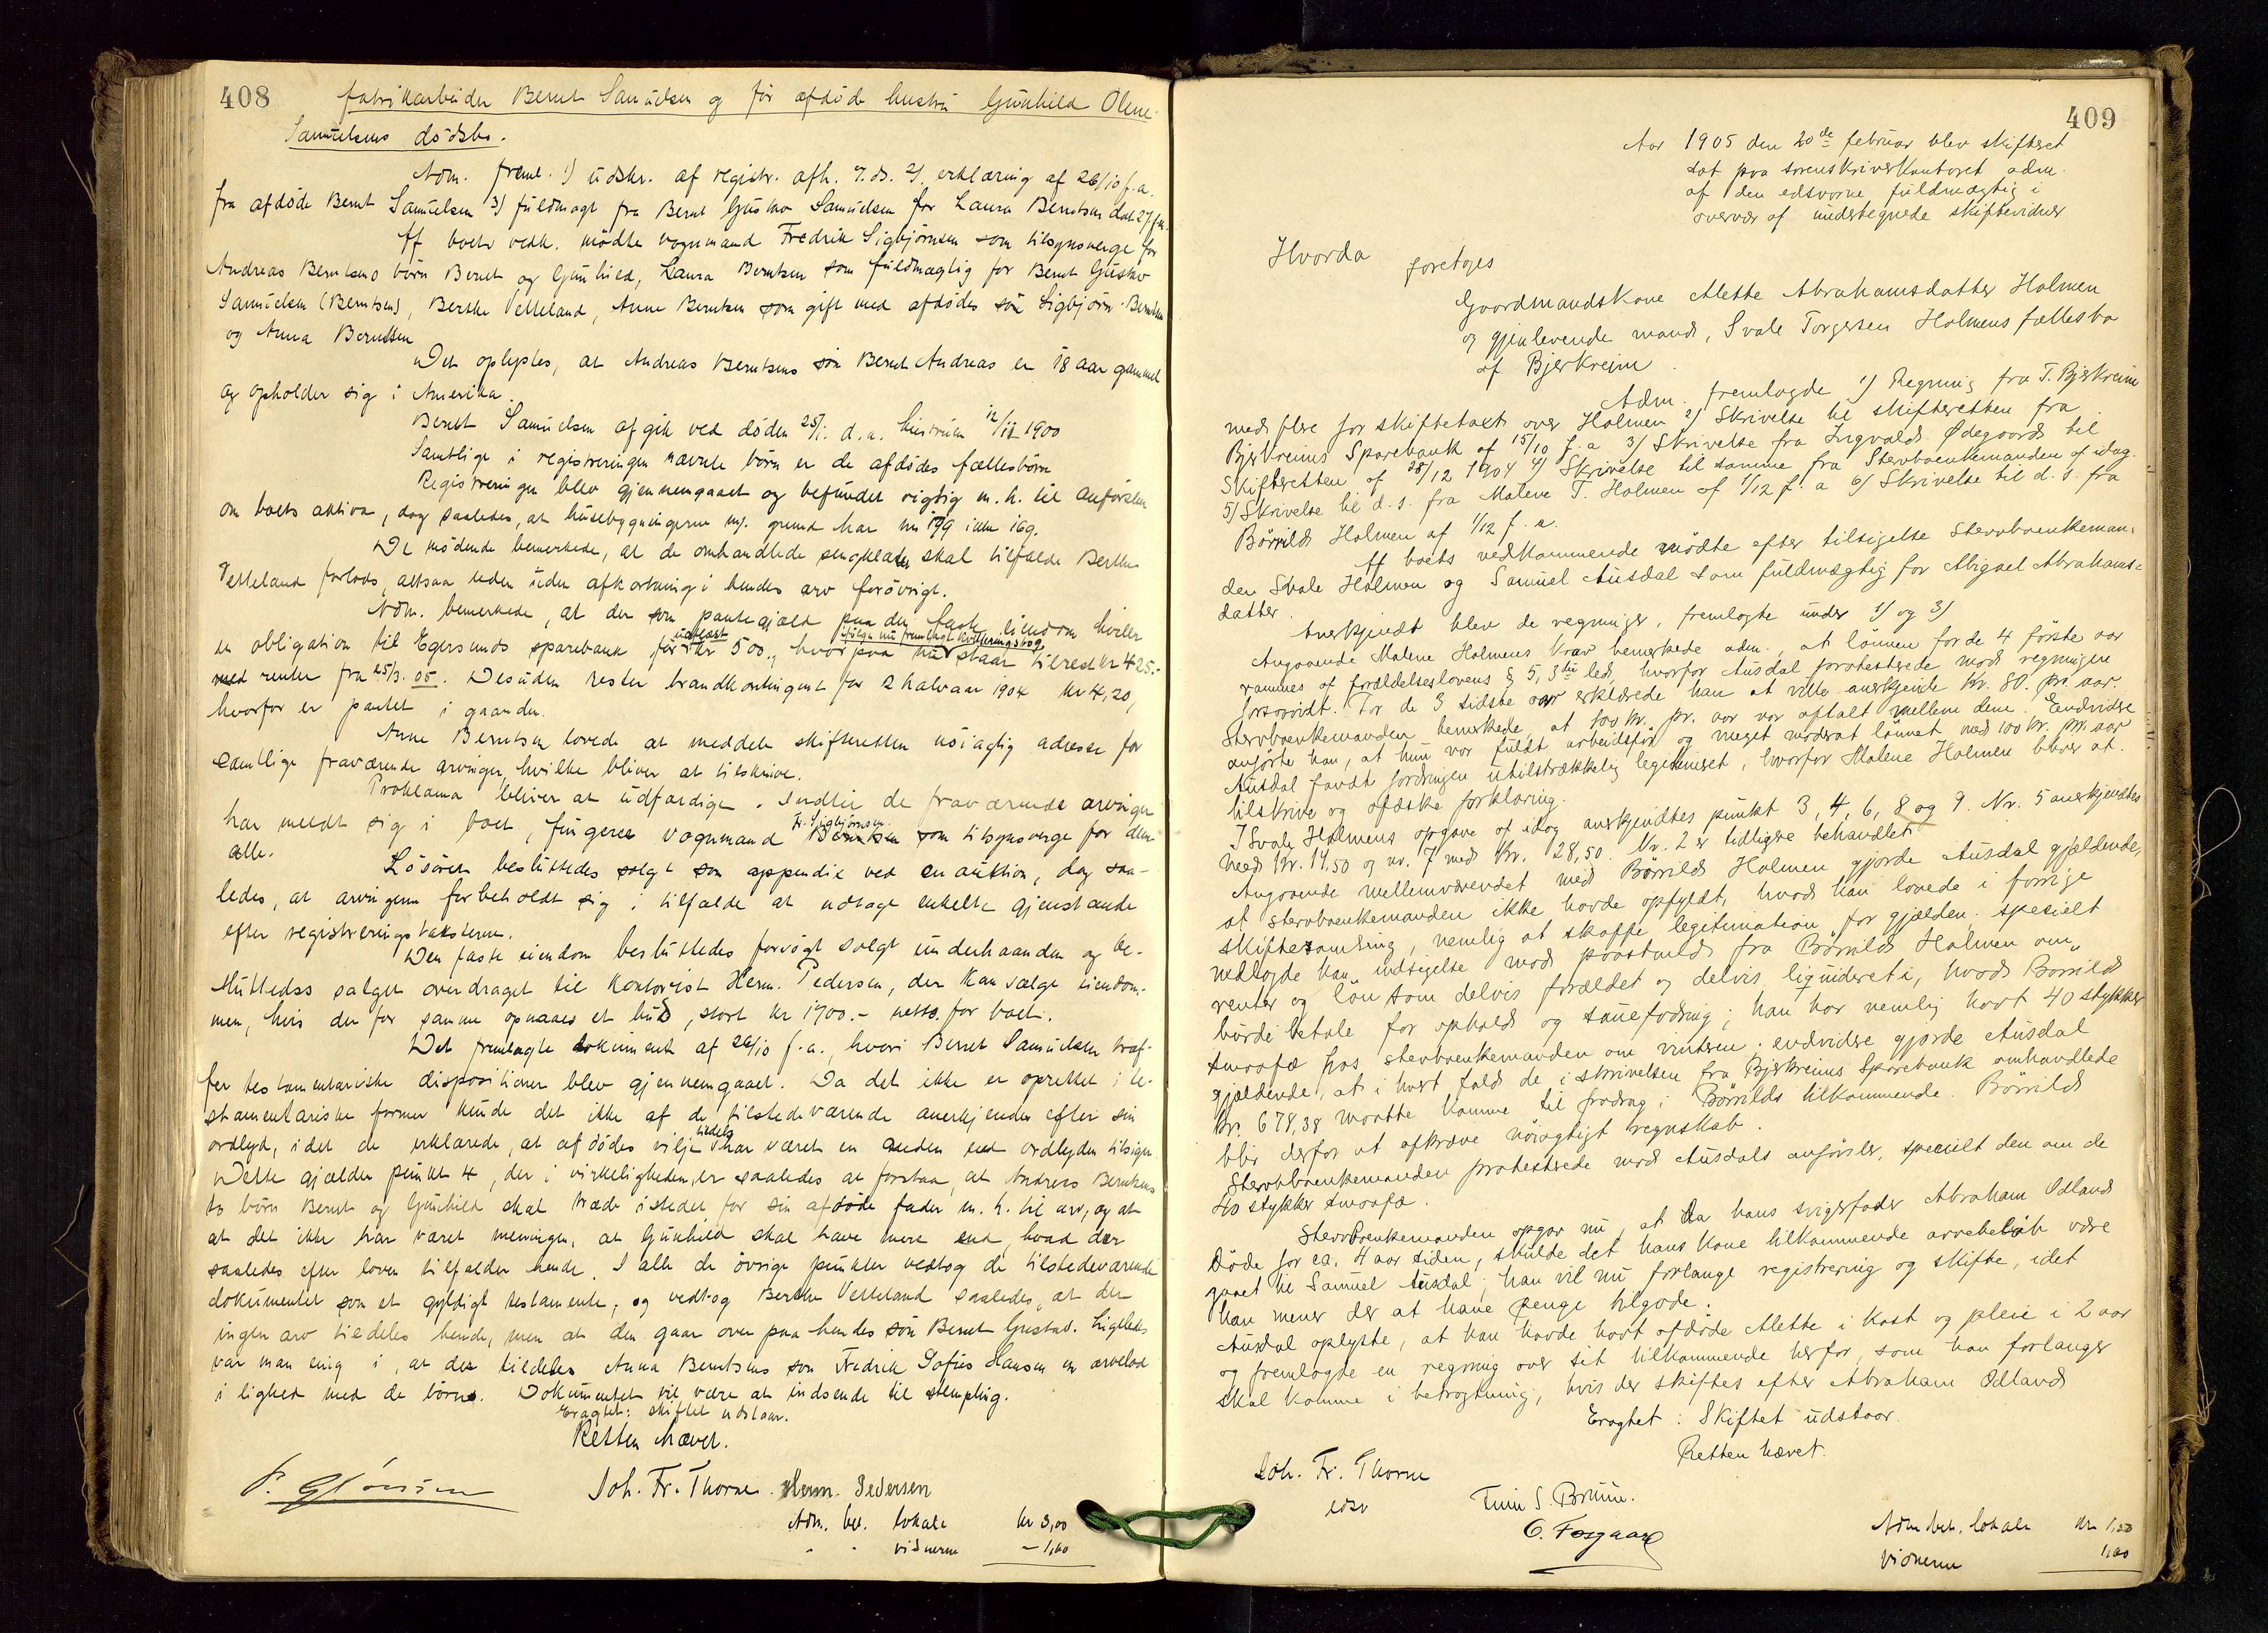 408
fabrikarbeider Bernt Samuelsen og før afdøde hustru Gunhild Olene
Samuelsens dødsbo.
Adm. freml. 1) udskr. af registr. afh. 7. ds. 2) erklæring af 26/10 f.a.
fra afdøde Bernt Samuelsen 3) fuldmagt fra Bernt Gustav Samuelsen for Laura Berntsen dat.
Af boets vedk. mødte vognmand Fredrik Sigbjørnsen som tilsynsverge for
Andreas Berntsens børn Bernt og Gunhild, Laura Berntsen som fuldmægtig for Bernt Gustav
Samuelsen (Berntsen), Berthe Vetteland, Anne Berntsen som gift med afdødes søn Sigbjørn Berntsen
og Anna Berntsen
Det oplystes, at Andreas Berntsens søn Bernt Andreas er 18 aar gammel
og opholder sig i Amerika.
Bernt Samuelsen afgik ved døden 25/1. d.a. hustruen 12/12 1900
Samtlige i registreringen nævnte børn er de afdødes fællesbørn
Registreringen blev gjennemgaaet og befundet rigtig m.h. til anførslen
om boets aktiva, dog saaledes, at husebygningerne m. grund har nu 179 ikke 169.
De mødende bemerkede, at de omhandlede sengklæder skal tilfalde Berthe
Vetteland forlods, altsaa uden afkortning i hendes arv forøvrigt.
Adm. bemerkede, at der som pantegjæld paa den faste eiendom hviler
en obligation til Egersunds sparebank udlaast for kr 500., hvorpaa ifølge nu fremlagt kvitteringsbog nu staar tilrest kr 425.-
med renter fra 25/3. 05. Desuden rester brandkontingent for 2 halvaar 1904 kr 4,20,
hvorfor er pantet i gaarden.
Anne Berntsen lovede at meddele skifteretten nøiagtig adresse for
samtlige fraværende arvinger, hvilke bliver at tilskrive.
Proklama bliver at udfærdige. Indtil de fraværende arvinger
har meldt sig i boet, fungerer vognmand Fr. Sigbjørnsen som tilsynsverge for dem
alle.
Løsøret besluttedes solgt som appendix ved en auktion, dog saa-
ledes, at arvingerne forbeholdt sig i tilfælde at udtage enkelte gjenstande
efter registreringstaksterne.
Den faste eiendom besluttedes forsøgt solgt underhaanden og be-
sluttedes salget overdraget til kontorist Herm. Pedersen, der kan sælge eiendom-
men, hvis der for samme opnaaes et bud, stort kr 1900.- netto for boet.
Det fremlagte dokument af 26/10 f.a., hvori Bernt Samuelsen træf-
fer testamentariske dispositioner blev gjennemgaaet. Da det ikke er oprettet i te-
stamentariske former kunde det ikke af de tilstedeværende anerkjendes efter sin
ordlyd, idet de erklærede, at afdødes vilje tildels har været en anden end ordlyden tilsiger
Dette gjælder punkt 4, der i virkeligheden er saaledes at forstaa, at Andreas Berntsens
to børn Bernt og Gunhild skal træde istedet for sin afdøde fader m.h. til arv, og at
at det ikke har været meningen, at Gunhild skal have mere end, hvad der
saaledes efter loven tilfalder hende. I alle de øvrige punkter vedtog de tilstedeværende
dokumentet som et gyldigt testamente, og vedtog Berthe Vetteland saaledes, at der
ingen arv tildeles hende, men at den gaar over paa hendes søn Bernt Gustav. Ligeledes
var man enig i, at der tildeles Anna Berntsens søn Fredrik Sofus Hansen en arvelod
i lighed med de børns. Dokumentet vil være at indsende til stempling.
Eragtet: skiftet udstaar.
Retten hævet.
Joh. Fr. Thorne. Herm. Pedersen
Adm. bet. lokale kr 3,00
" " vidnerne - 1,60
409
Aar 1905 den 20de februar blev skifteret
sat paa sorenskriverkontoret adm.
af den edsvorne fuldmægtig i
overvær af undertegnede skiftevidner
Hvorda
foretoges
Gaardmandskone Alette Abrahamsdatter Holmen
og gjenlevende mand, Svale Torgersen Holmens fællesbo
af Bjerkreim.
Adm. fremlagde 1) Regning fra T. Bjerkreim
med flere for skiftetakt over Holmen 2) Skrivelse til skifteretten fra
Bjerkreims Sparebank af 15/10 f.a 3) Skrivelse fra Ingvald Ødegaard til
Skifteretten af 28/12 1904 4) Skrivelse til samme fra Stervboenkemanden af idag.
5) Skrivelse til d.s. fra Malene T. Holmen af 1/12 f.a 6) Skrivelse til d.s. fra
Børrild Holmen af 1/12 f.a.
Af boets vedkommende mødte efter tilsigelse Stervboenkeman-
den Svale Holmen og Samuel Ausdal som fuldmægtig for Abigael Abrahams-
datter.
Anerkjendt blev de regninger, fremlagte under 1) og 3)
Angaaende Malene Holmens krav bemerkede adm., at lønnen for de 4 første aar
rammes af forældelseslovens § 5, 3die led, hvorfor Ausdal protesterede mod regningen
forsaavidt. For de 3 sidste aar erklærede han at ville anerkjende Kr. 80. pr. aar.
Stervboenkemanden bemerkede, at 100 kr. pr. aar var aftalt mellem dem. Endvidere
anførte han, at hun var fuldt arbeidsfør og meget moderat lønnet med 100 kr. pr. aar
Ausdal fandt fordringen utilstrækkelig legitimeret, hvorfor Malene Holmen bliver at
tilskrive og afæske forklaring.
I Svale Holmens opgave af idag anerkjendtes punkt 3, 4, 6, 8 og 9. Nr. 5 anerkjendtes
med Kr. 14.50 og nr. 7 med Kr. 28,50. Nr. 2 er tidligere behandlet.
Angaaende mellemværendet med Børrild Holmen gjorde Ausdal gjældende,
at stervboenkemanden ikke havde opfyldt, hvad han lovede i forrige
skiftesamling, nemlig at skaffe legitimation for gjælden; specielt
nedlagde han indsigelse mod paastand fra Børrild Holmen om
renter og løn som delvis forældet og delvis ligvideret i, hvad Børrild
burde betale for ophold og sauefodring; han har nemlig havt 40 stykker
smaafæ hos stervboenkemanden om vintren; endvidere gjorde Ausdal
gjældende, at i hvert fald de i skrivelsen fra Bjerkreims Sparebank omhandlede
Kr. 678,38 maatte komme til fradrag i Børrilds tilkommende. Børrild
blir derfor at afkræve nøiagtigt regnskab.
Stervboenkemanden protesterede mod Ausdals anførsler, specielt den om de
40 stykker smaafæ.
Stervboenkemanden opgav nu, at da hans svigerfader Abraham Ødland
døde for ca. 4 aar siden, skulde det hans kone tilkommende arvebeløb være
gaaet til Samuel Ausdal; han vil nu forlange registrering og skifte, idet
han mener der at have penge tilgode.
Ausdal oplyste, at han havde havt afdøde Alette i kost og pleie i 2 aar
og fremlagde en regning over sit tilkommende herfor, som han forlanger
skal komme i betragtning, hvis der skiftes efter Abraham Ødland
Eragtet: Skiftet udstaar.
Retten hævet.
Joh. Fr. Thorne
edsv
S. Bruun.
O. Fosgaard
Adm. bet. lokale kr 1,00
vidnerne 1,60